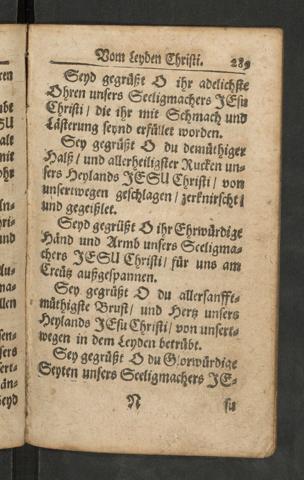 Vom Leyden Christi. 289
Seyd gegrüßt O ihr adelichste
Ohren unsers Seeligmachers JEsu
Christi / die ihr mit Schmach und
Lästerung seynd erfüllet worden.
Sey gegrüßt O du demüthiger
Halß / und allerheiligster Rucken un-
sers Heylands JESU Christi / von
unsertwegen geschlagen / zerknirscht /
und gegeißlet.
Seyd gegrüßt O ihr Ehrwürdige
Händ und Armb unsers Seeligma-
chers JESU Christi / für uns am
Creütz außgespannen.
Sey gegrüßt O du allersanfft-
müthigste Brust / und Hertz unsers
Heylands JEsu Christi / von unsert-
wegen in dem Leyden betrübt.
Sey gegrüßt O du Glorwürdige
Seyten unsers Seeligmachers JE-
N su